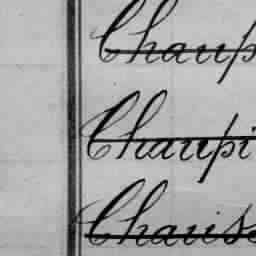 Chaup
Chaupi
Chauss